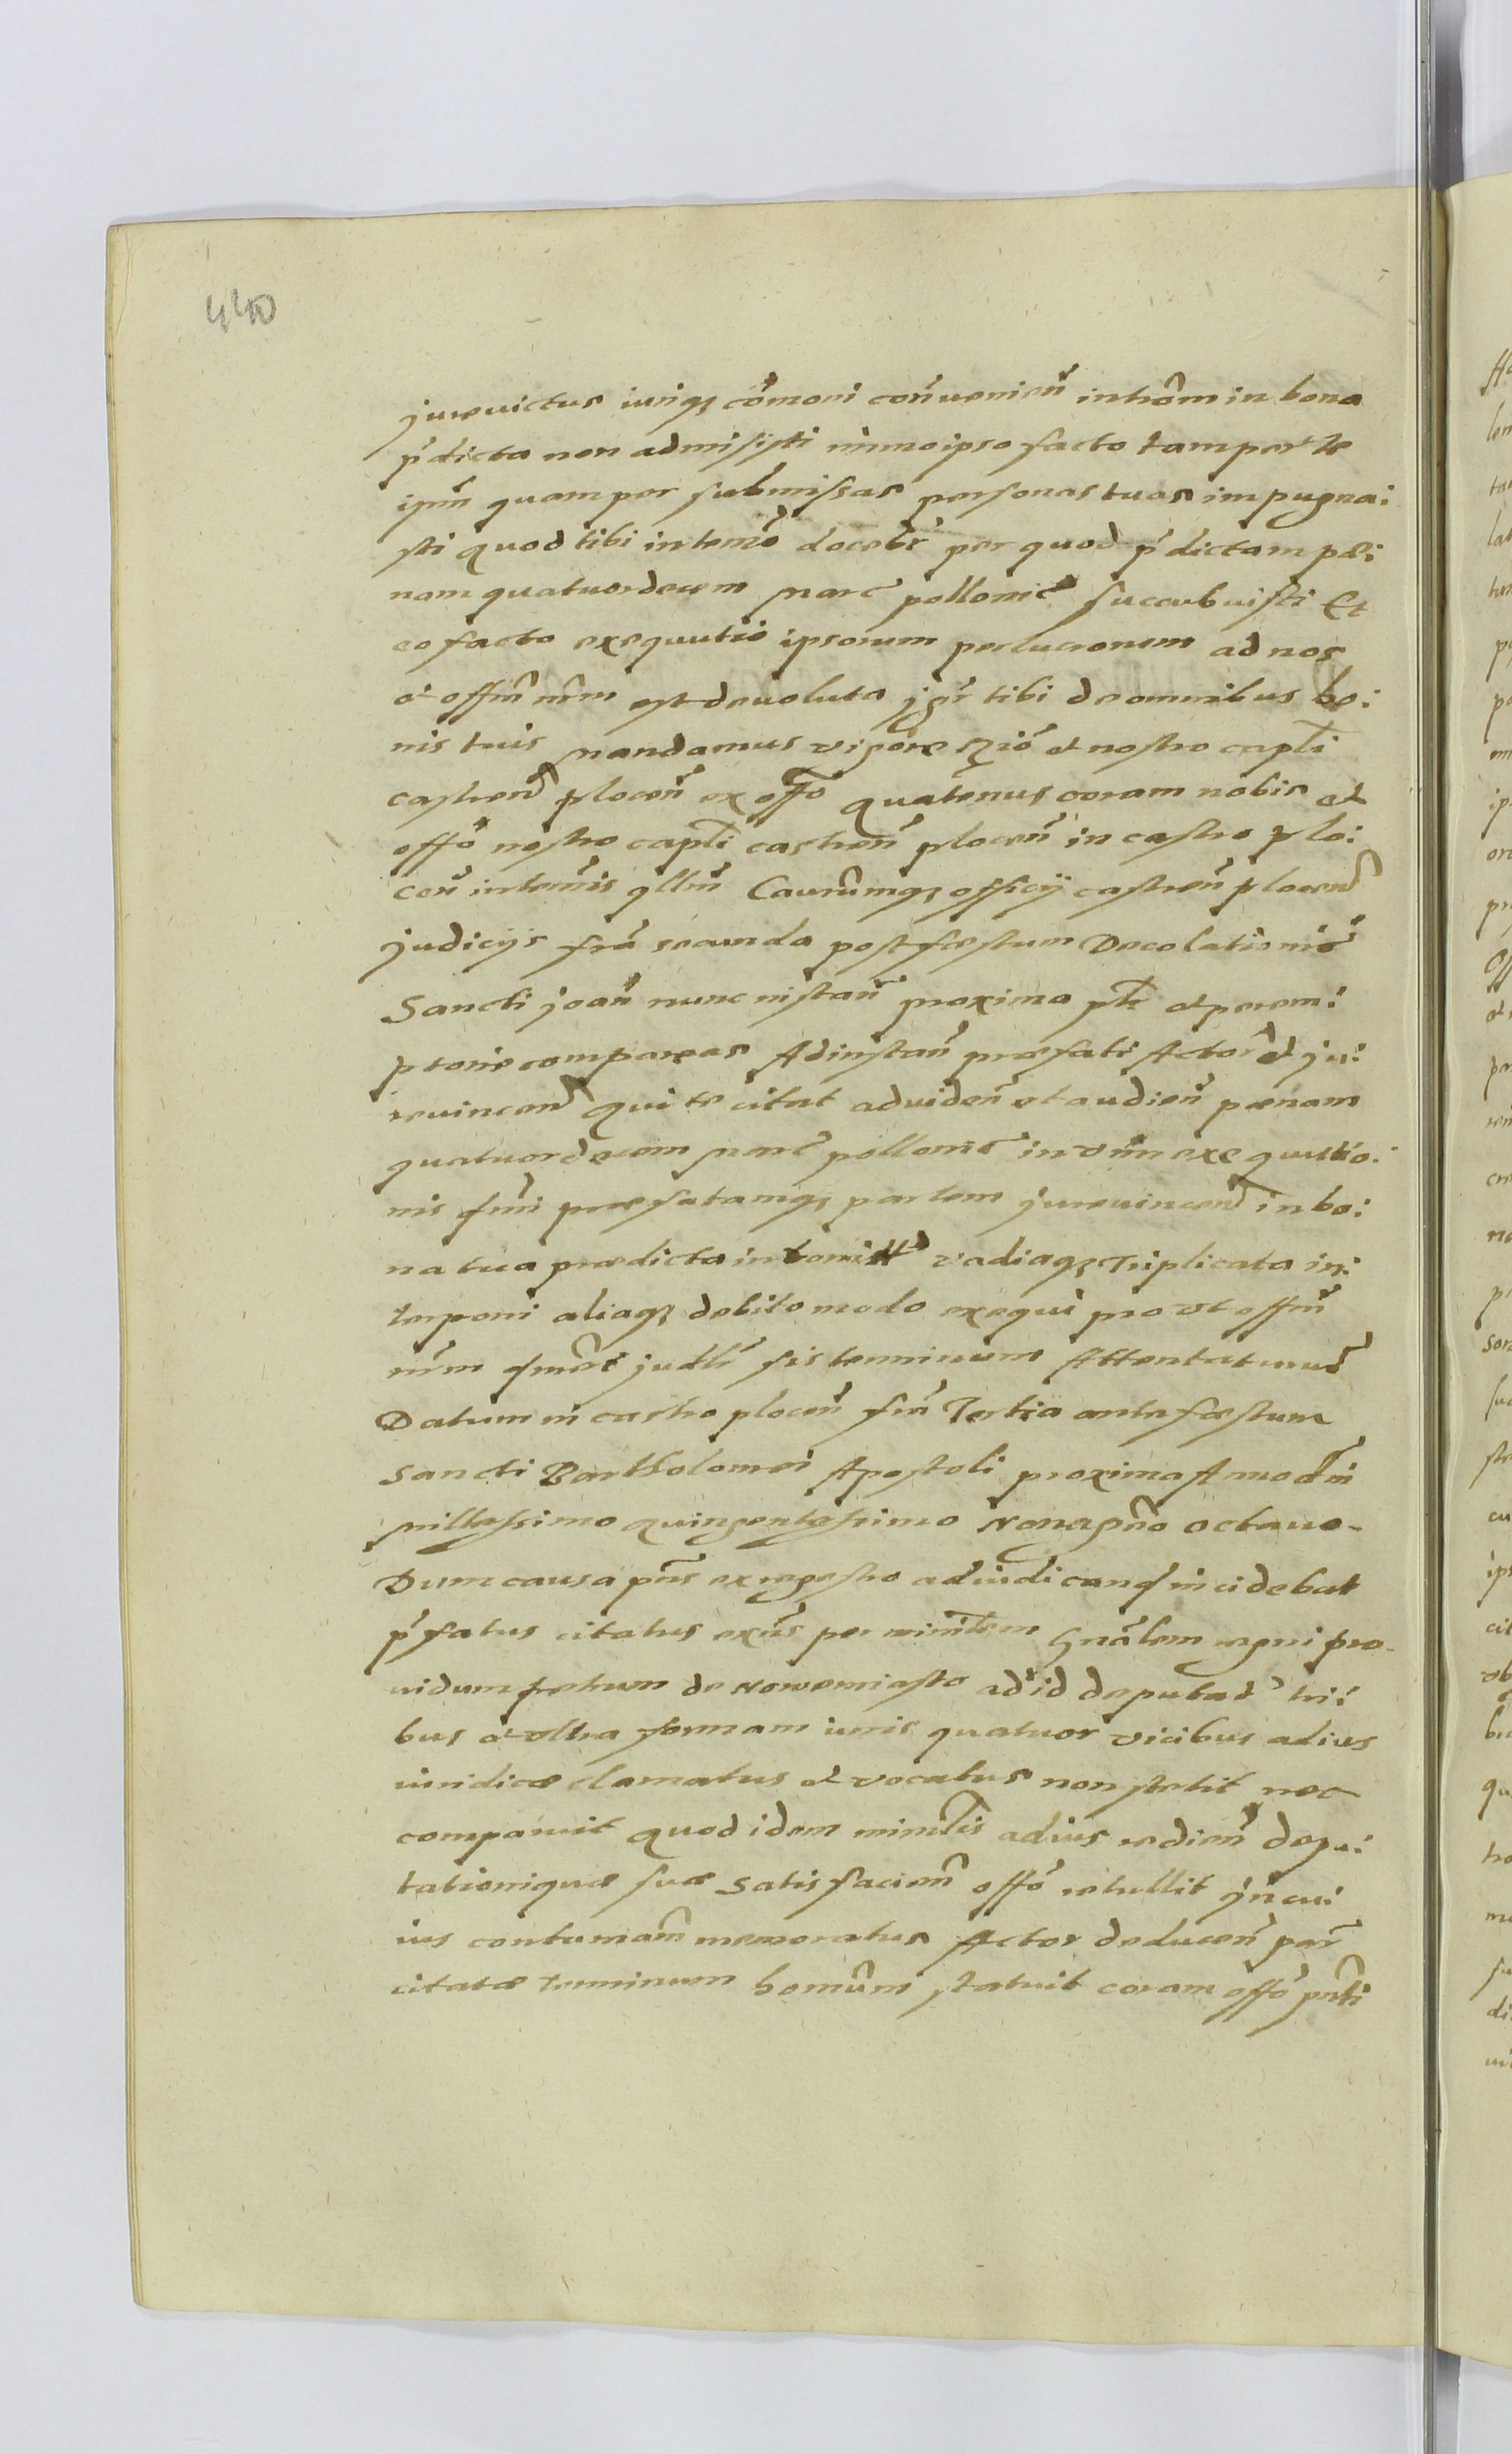 440
jurevictus juriqȝ cõmoni conṽenien̄ intro᷃m in bona
p̃dicta non admisisti immo ipso facto tam per te
ipm̃ quam per submissas personas tuas impugna:
sti quod tibi in termõ docebr̃ per quod p̃dictam pæ:
nam quatuordecem marc̃ pollonic̃ succubuisti Et
eo facto exequutio ipsorum perlucronem ad nos
et offm̃ nr̃m est devoluta jgr̃ tibi de omnibus bo:
nis tuis mandamus vigore et nostro capt̃li
castren̄ plocen̄ ex offõ quatenus coram nobis et
offõ nostro capt̃li castren̄ plocen̄ in castro plo:
cen̄ in termĩs qllm̃ Caurũmqȝ officÿ castren̄ plocen̄
judicÿs fr̃ia secunda post fæstum Decolationis
Sancti joan̄ nunc instan̄ proxima pt̃r et perem:
ptorie compareas Ad instan̄ præfati Actor̃ et ju:
revincen̄ qui te citat ad viden̄ et audien̄ pænam
quatuordecem marc̃ pollonic̃ in vim exequutio:
nis præfatamqȝ partem jurevincen̄ in bo:
na tua prædicta intomitt̃ vadiaqȝ Triplicata in:
terponi aliaqȝ debito modo exequi pro vt offm̃
nr̃m judlr̃ sis terminum Attentaturus
Datum in castro plocen̄ fr̃ia Tertia ante fæstum
Sancti Bartholomei Apostoli proxima Anno dñi
millessimo quingentessimo Nonagñõ octavo.
Dum causa pñs ex regestro adiudicand incidebat
p̃fatus citatus exñs per ministr̃lem Gnãlem regni pro-
vidum petrum de Nowemiasto ad id deputat̃ tri:
bus et vltra formam iuris quatuor vicibus ad ius
iuridicæ clamatus et vocatus non stetit nec
comparuit quod idem ministr̃lis ad ius redien̄ depu:
tationique suæ satisfacien̄ offõ retullit jn cu:
ius contumañ memoratus Actor deducen̄ par̃
citatæ terminum homũm statuit coram offõ pñti